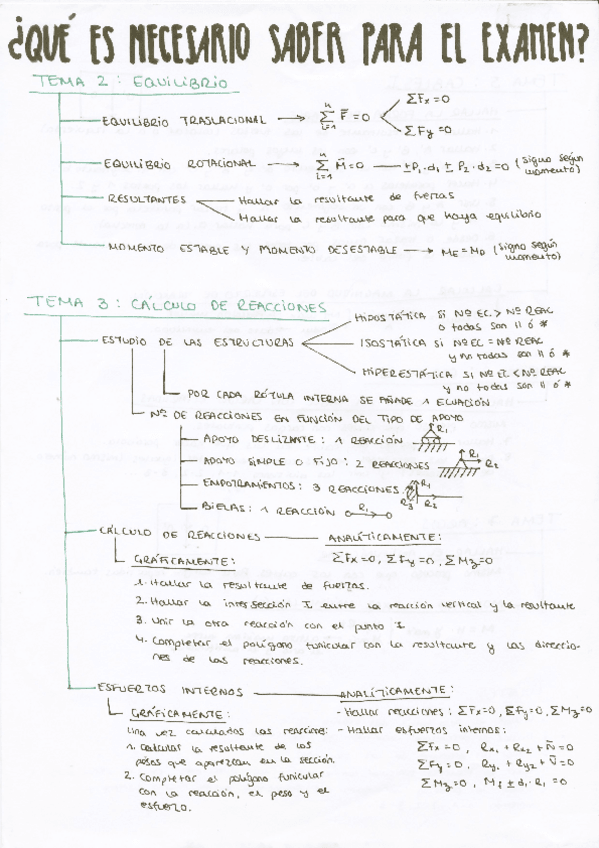 ¿QUÉ ES NECESARIO SABER PARA EL EXAMEN?
TEMA 2: EQUILIBRIO
EQUILIBRIO TRASLACIONAL → Σ F̄ = 0 ΣFx = 0
n i=1 ΣFy = 0
EQUILIBRIO ROTACIONAL → Σ M̄ = 0 → ±P₁·d₁ ± P₂·d₂ = 0 (signo según momento)
n i=1
RESULTANTES Hallar la resultante de fuerzas
Hallar la resultante para que haya equilibrio
MOMENTO ESTABLE Y MOMENTO DESESTABLE → ME = MD (signo según momento)
TEMA 3: CÁLCULO DE REACCIONES
ESTUDIO DE LAS ESTRUCTURAS
HIPOSTÁTICA SI Nº EC. > Nº REAC
o todas son II ó *
ISOSTÁTICA SI Nº EC = Nº REAC
y no todas son II ó *
HIPERESTÁTICA SI Nº EC < Nº REAC
y no todas son II ó *
POR CADA RÓTULA INTERNA SE AÑADE 1 ECUACIÓN
Nº DE REACCIONES EN FUNCIÓN DEL TIPO DE APOYO
APOYO DESLIZANTE: 1 REACCIÓN R₁
APOYO SIMPLE O FIJO: 2 REACCIONES R₁ R₂
EMPOTRAMIENTOS: 3 REACCIONES R₁ R₃ R₂
BIELAS: 1 REACCIÓN R₁
CÁLCULO DE REACCIONES ANALÍTICAMENTE:
GRÁFICAMENTE: ΣFx=0, ΣFy=0, ΣMz=0
1. Hallar la resultante de fuerzas.
2. Hallar la intersección I entre la reacción vertical y la resultante
3. Unir la otra reacción con el punto I
4. Completar el polígono funicular con la resultante y las direccio-
nes de las reacciones.
ESFUERZOS INTERNOS ANALÍTICAMENTE:
GRÁFICAMENTE: - Hallar reacciones: ΣFx=0, ΣFy=0, ΣMz=0
Una vez calculadas las reacciones: - Hallar esfuerzos internos:
1. Calcular la resultante de los ΣFx=0, Rx₁ + Rx₂ + N̄ = 0
pesos que aparezcan en la sección. ΣFy=0, Ry₁ + Ry₂ + V̄ = 0
2. Completar el polígono funicular ΣMz=0, Mf ± d₁·R₁ = 0
con la reacción, el peso y el
esfuerzo.